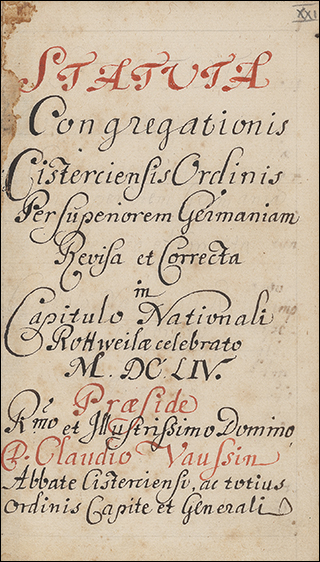 XXI
STATUTA
Congregationis
Cisterciensis Ordinis
Per superiorem Germaniam
Revisa et Correcta
in
Capitulo Nationali
Rottweilæ celebrato
M. DC LIV.
Præside
Rmo et Illustrissimo Domino
D. Claudio Vaussin
Abbate Cisterciensi, ac totius
Ordinis Capite et Generali